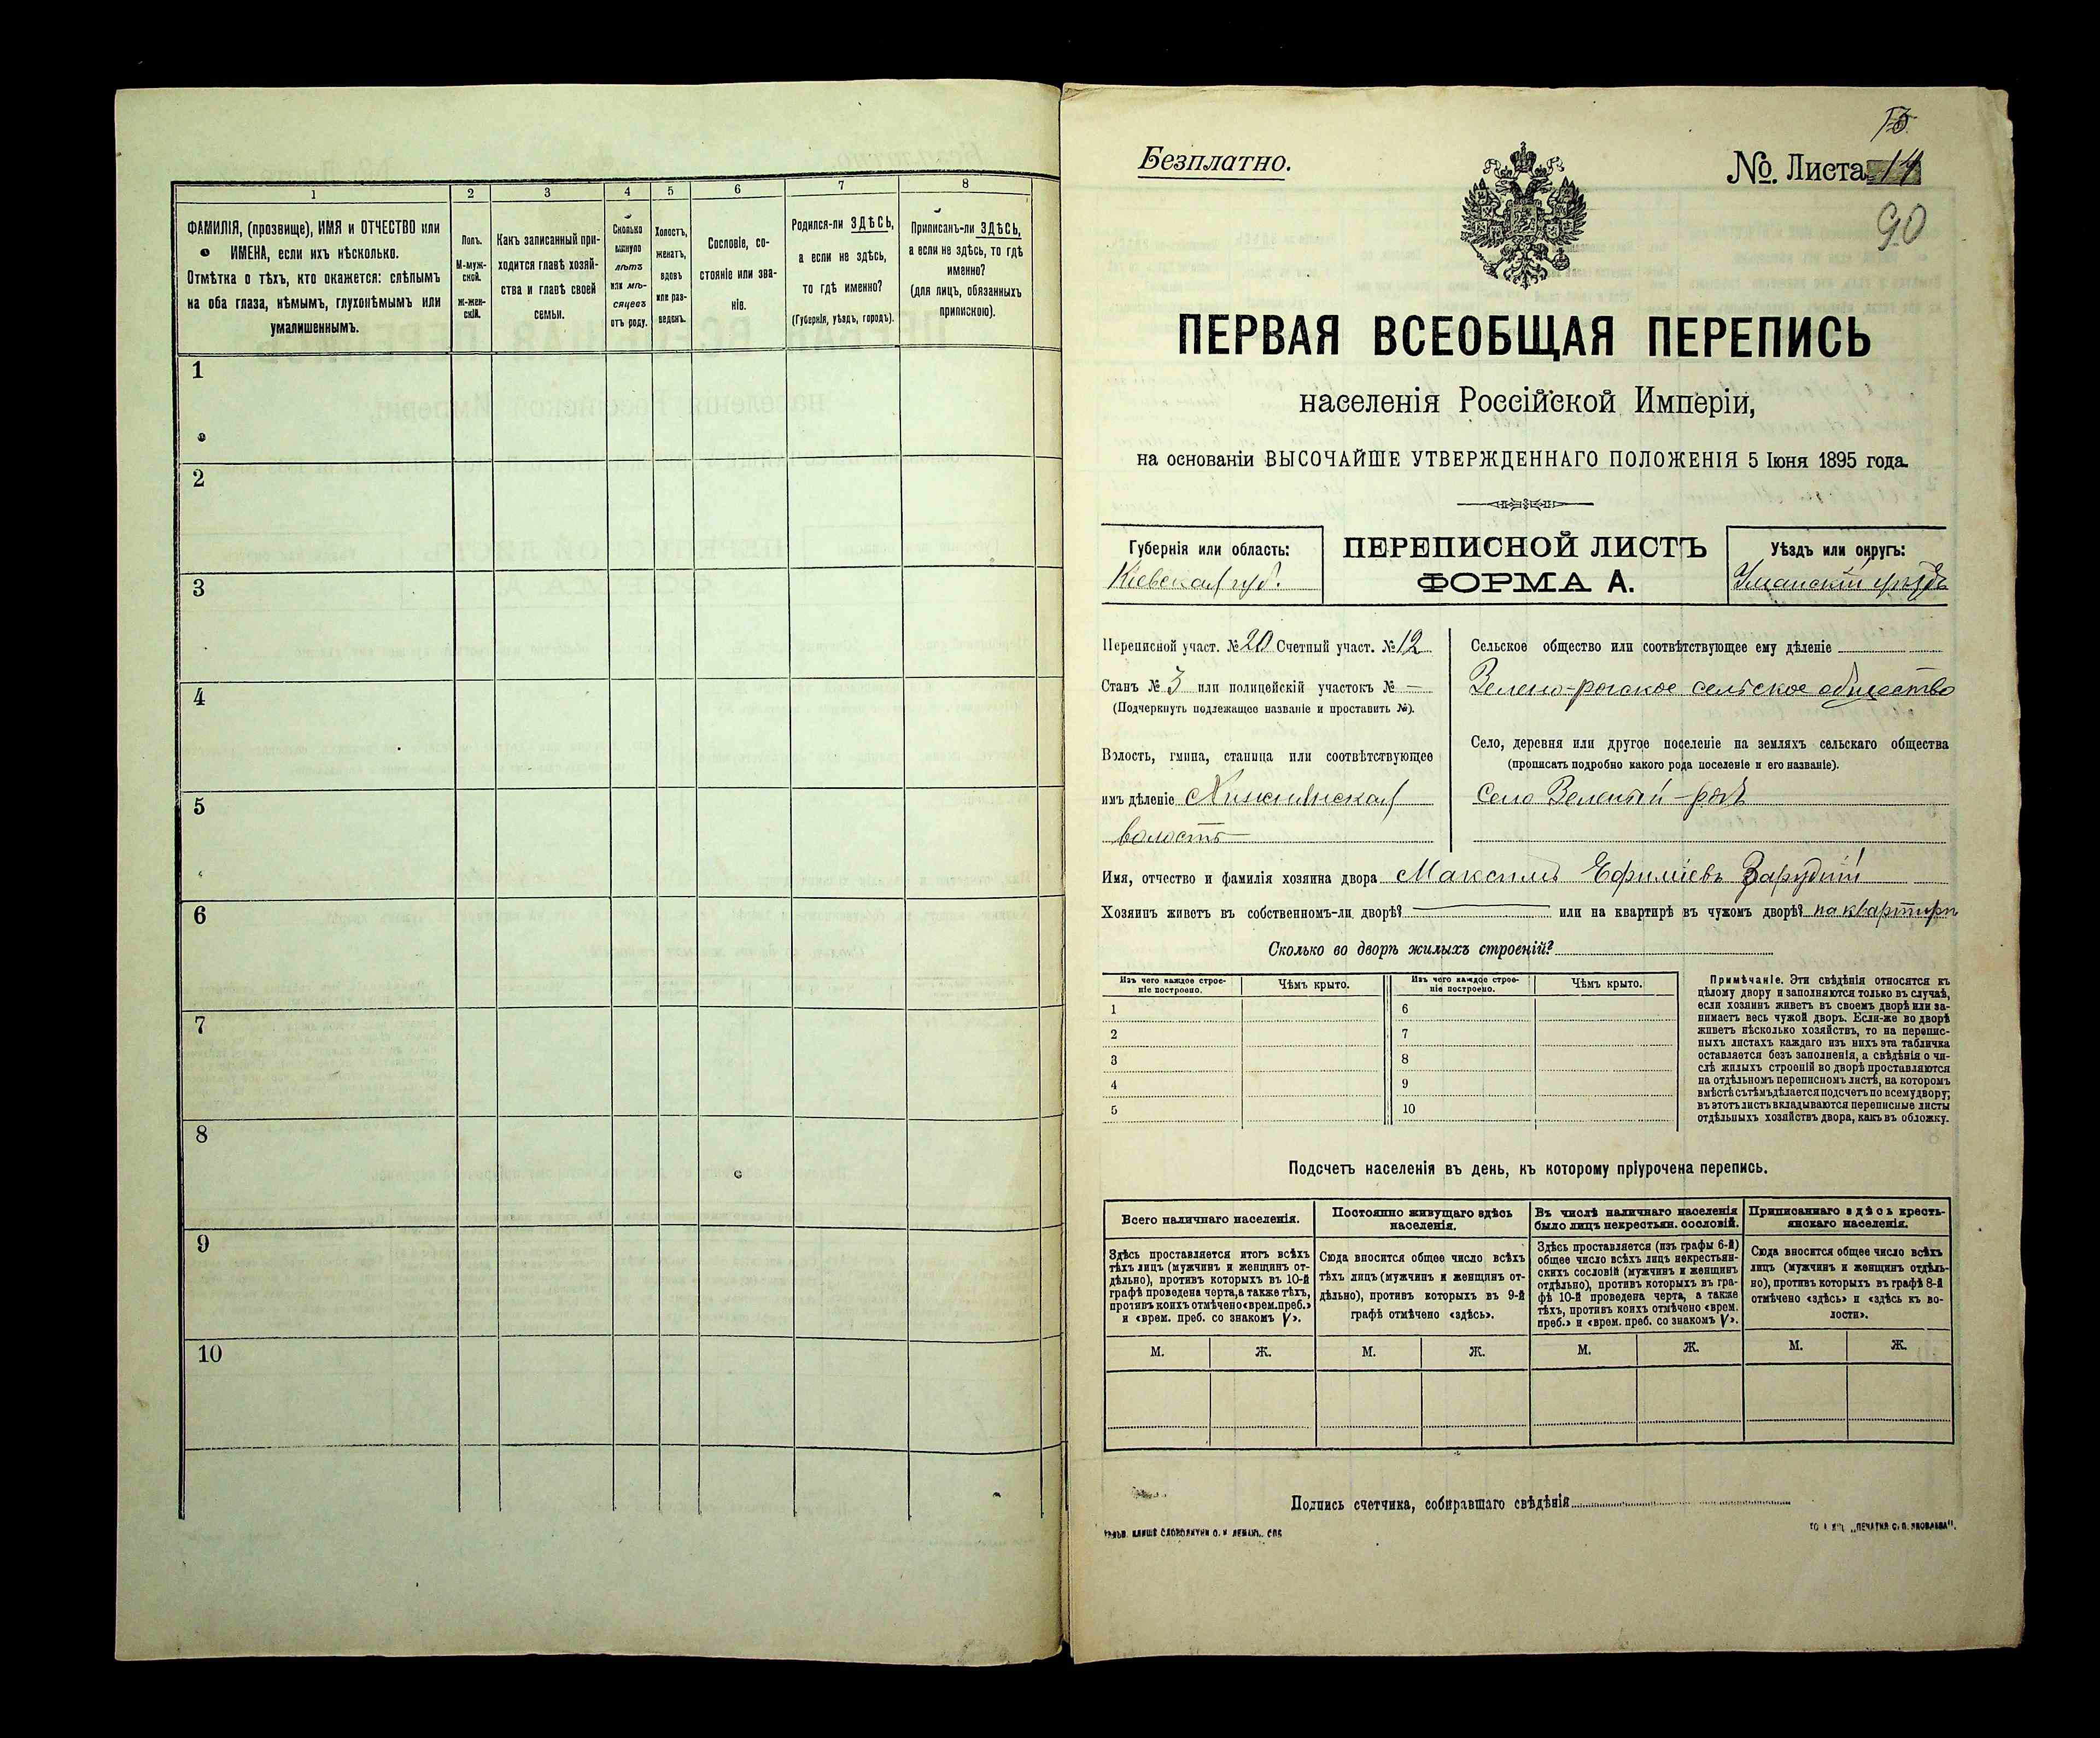 1
2
3
4
5
6
7
8
ФАМИЛІЯ, (прозвище), ИМЯ и ОТЧЕСТВО или
ИМЕНА, если ихъ нѣсколько.
Отмѣтка о тѣхъ, кто окажется: слѣпымъ
на оба глаза, нѣмымъ, глухонѣмымъ или
умалишеннымъ.
Полъ.
М-муж-
ской.
ж-жен-
скій.
Какъ записанный при-
ходится главѣ хозяй-
ства и главѣ своей
семьи.
Сколько
минуло
лѣтъ
или мѣ-
сяцевъ
отъ роду.
Холостъ,
женатъ,
вдовъ
или раз-
веденъ.
Сословіе, со-
стояніе или зва-
ніе.
Родился-ли ЗДѢСЬ,
а если не здѣсь,
то гдѣ именно?
(Губернія, уѣздъ, городъ).
Приписанъ-ли ЗДѢСЬ,
а если не здѣсь, то гдѣ
именно?
(для лицъ, обязанныхъ
припискою).
1
2
3
4
5
6
7
8
9
10
Безплатно.
№. Листа 14
90
ПЕРВАЯ ВСЕОБЩАЯ ПЕРЕПИСЬ
населенія Россійской Имперіи,
на основаніи ВЫСОЧАЙШЕ УТВЕРЖДЕННАГО ПОЛОЖЕНІЯ 5 Іюня 1895 года.
Губернія или область:
Кіевская губ.
ПЕРЕПИСНОЙ ЛИСТЪ
ФОРМА А.
Уѣздъ или округъ:
Уманскій уѣздъ
Переписной участ. № 20 Счетный участ. № 12
Станъ № 3 или полицейскій участокъ № —
(Подчеркнуть подлежащее названіе и проставить №).
Волость, гмина, станица или соотвѣтствующее
имъ дѣленіе
волость
Сельское общество или соотвѣтствующее ему дѣленіе
Зелено-рогское сельское общество
Село, деревня или другое поселеніе на земляхъ сельскаго общества
(прописать подробно какого рода поселеніе и его названіе).
Село Зеленый-рогъ
Имя, отчество и фамилія хозяина двора Максимъ Ефиміевъ Зарудній
Хозяинъ живетъ въ собственномъ-ли дворѣ? — или на квартирѣ въ чужомъ дворѣ? на квартирѣ
Сколько во дворѣ жилыхъ строеній?
Изъ чего каждое строе-
ніе построено.
Чѣмъ крыто.
Изъ чего каждое строе-
ніе построено.
Чѣмъ крыто.
1
2
3
4
5
6
7
8
9
10
Примѣчаніе. Эти свѣдѣнія относятся къ
цѣлому двору и заполняются только въ случаѣ,
если хозяинъ живетъ въ своемъ дворѣ или за-
нимаетъ весь чужой дворъ. Если-же во дворѣ
живетъ нѣсколько хозяйствъ, то на перепис-
ныхъ листахъ каждаго изъ нихъ эта табличка
оставляется безъ заполненія, а свѣдѣнія о чи-
слѣ жилыхъ строеній во дворѣ проставляются
на отдѣльномъ переписномъ листѣ, на которомъ
вмѣстѣ съ тѣмъ дѣлается подсчетъ по всему двору;
въ этотъ листъ вкладываются переписные листы
отдѣльныхъ хозяйствъ двора, какъ въ обложку.
Подсчетъ населенія въ день, къ которому пріурочена перепись.
Всего наличнаго населенія.
Здѣсь проставляется итогъ всѣхъ
тѣхъ лицъ (мужчинъ и женщинъ от-
дѣльно), противъ которыхъ въ 10-й
графѣ проведена черта, а также тѣхъ,
противъ коихъ отмѣчено «врем. преб.»
и «врем. преб. со знакомъ V».
Постоянно живущаго здѣсь
населенія.
Сюда вносится общее число всѣхъ
тѣхъ лицъ (мужчинъ и женщинъ от-
дѣльно), противъ которыхъ въ 9-й
графѣ отмѣчено «здѣсь».
Въ числѣ наличнаго населенія
было лицъ некрестьян. сословій.
Здѣсь проставляется (изъ графы 6-й)
общее число всѣхъ лицъ некрестьян-
скихъ сословій (мужчинъ и женщинъ
отдѣльно), противъ которыхъ въ гра-
фѣ 10-й проведена черта, а также
тѣхъ, противъ коихъ отмѣчено «врем.
преб.» и «врем. преб. со знакомъ V».
Приписаннаго здѣсь кресть-
янскаго населенія.
Сюда вносится общее число всѣхъ
лицъ (мужчинъ и женщинъ отдѣль-
но), противъ которыхъ въ графѣ 8-й
отмѣчено «здѣсь» и «здѣсь къ во-
лости».
М.
Ж.
М.
Ж.
М.
Ж.
М.
Ж.
Подпись счетчика, собиравшаго свѣдѣнія